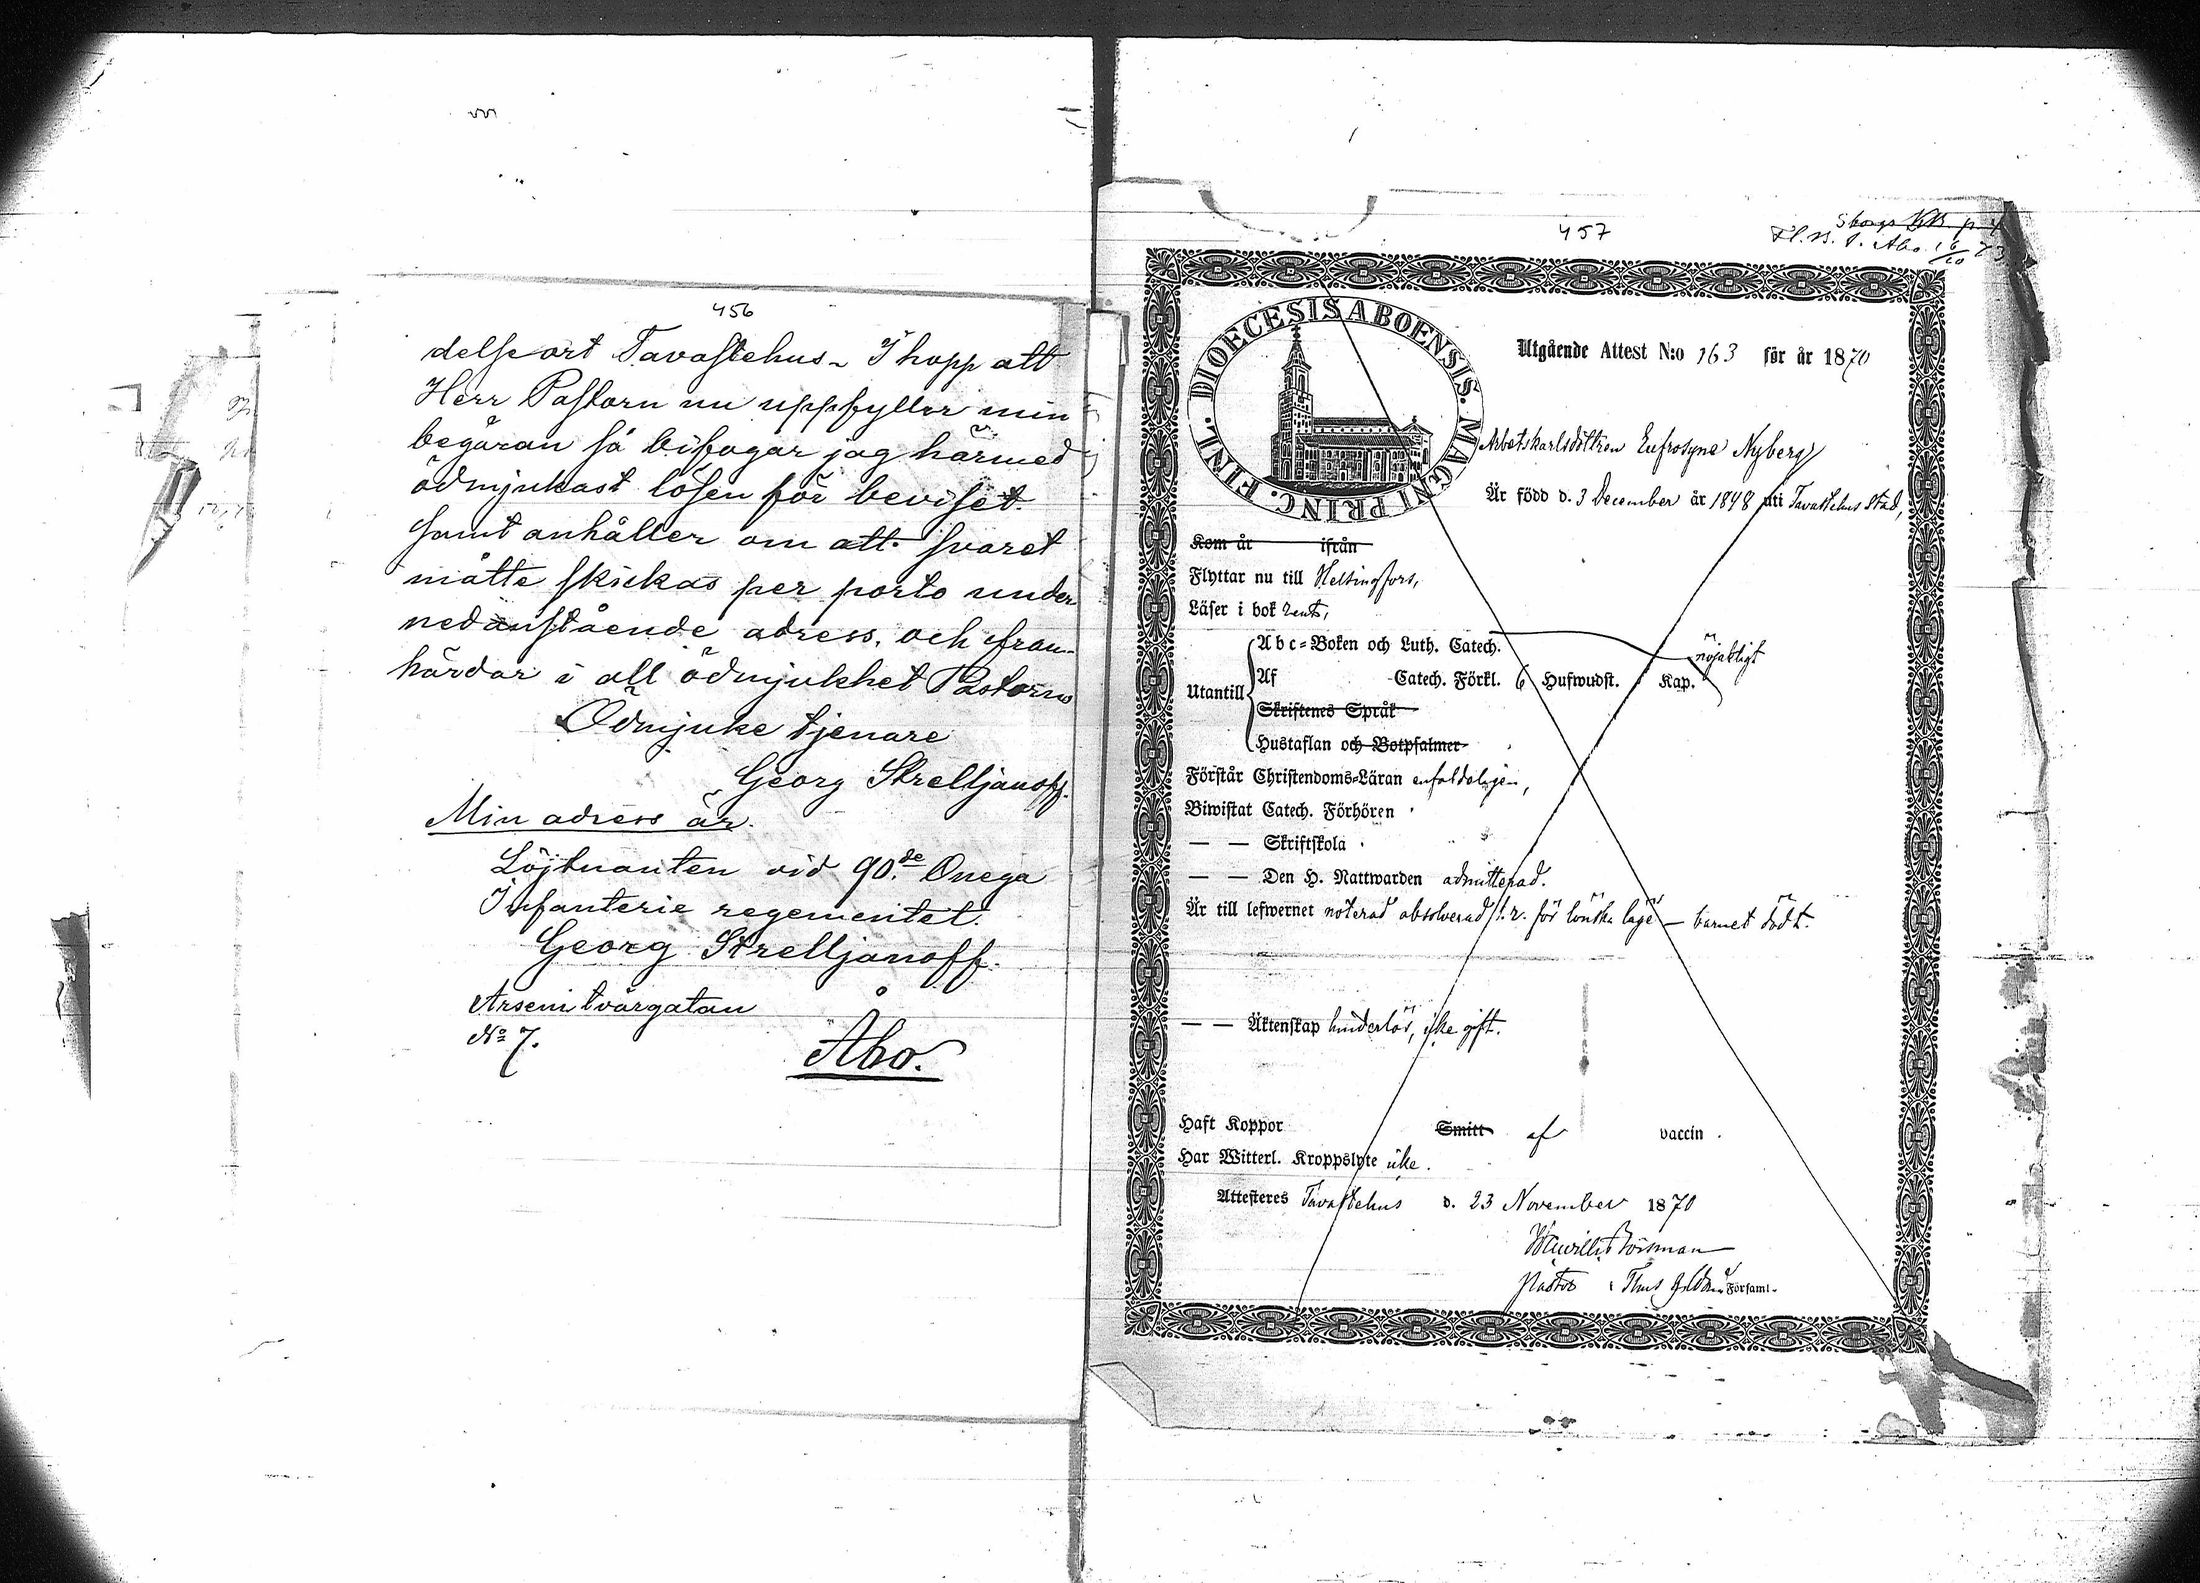 456
delseort Tavastehus. I hopp att
Herr Pastorn nu uppfyller min
begäran så bifogar jag härmed
ödmjukast lösen för beviset.
samt anhåller om att svaret
måtte skickas per porto under
nedanstående adress, och fram-
härdar i all ödmjukhet Pastorns
Ödmjuke tjenare
Georg Strelljanoff.
Min adress är.
Löjtnanten vid 90.de Onega
Infanterie regementet.
Georg Strelljanoff.
Arseni tvärgatan
No 7.
Åbo.
457
DIOECESIS ABOENSIS. MAGNI PRINC. FINL.
Utgående Attest N:o 163 för år 1870
Arbetskarlsdottren Eufrosyne Nyberg
Är född d. 3 December år 1848 uti Tavastehus stad,
Kom år ifrån
Flyttar nu till Helsingfors,
Läser i bok rent,
Abc-Boken och Luth. Catech.
nöjaktigt
Utantill Af Catech. Förkl. 6 Hufwudst. Kap.
Skriftenes Språk
Hustaflan och Botpsalmer
Förstår Christendoms-Läran enfaldeligen,
Biwistat Catech. Förhören
— — Skriftskola
— — Den H. Nattwarden admitterad.
Är till lefwernet noterad absolverad f.r. för lönska läge — barnet dödt.
— — Äktenskap hinderlös, icke gift.
Haft Koppor Smitt af vaccin
Har Witterl. Kroppslyte icke.
Attesteres Tavastehus d. 23 November 1870
Pastor Församl.